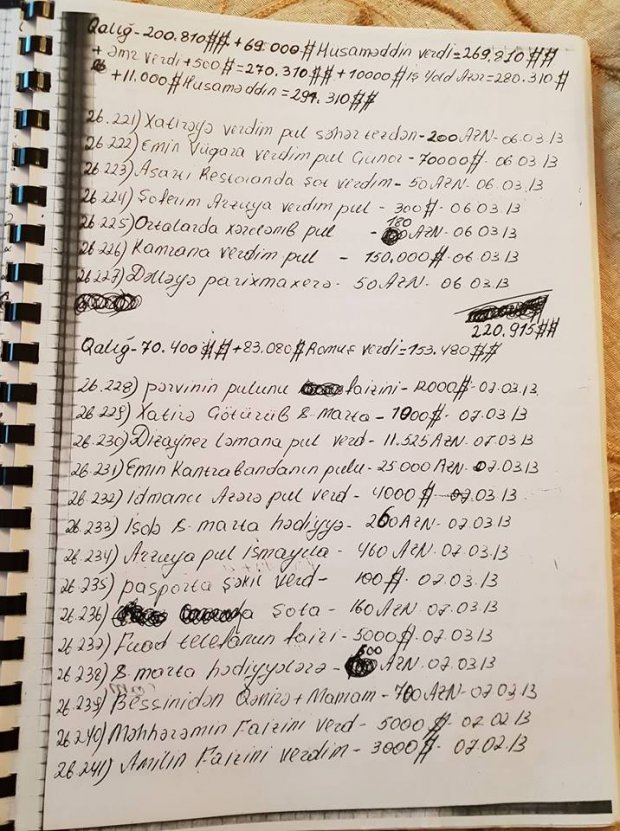 Qalığ-200.810## +69.000# Husaməddin verdi=269.810##
+ əmr verdi+500#=270.310##+10000# iş Yold Azər=280.310#
+11.000# Husaməddin=291.310##
26.221) Xatirəyə verdim pul səhər tezdən-200AZN-06.03.13
26.222) Emin Vüqara verdim pul Günor-70000$-06 03 13
26.223) Restoranda şot verdim-50AZN.06.03.13
26.224) Soferim Arzuya verdim pul-300$-06 03 13
26.225) Ortalarda xərclənib pul - 180 AZN.06 03 13
26.226) Kamrana verdim pul - 150.000$-06 03 13
26.227) parixmaxerə-50AZN-06 03.13
220.915##
Qalığ-70.400##+83.080# verdi=153.480##
26.228) pərvinin pulunu faizini-12000$-07.03.13
26.229) Xatirə Götürüb 8-marta-1000$-07.03 13
26.230) Dizayner Ləmana pul verd-11.525AZN.07.03 13
26.231) Emin Kantrabandanın pulu-25000AZN.07.03.13
26.232) Idmançı Azərə pul verd-4000$-07.03.13
26.233) Işdə 8-marta hədiyyə-260AZN-07.03 13
26.234) Arzuya pul Ismayıla-460 AZN.07.03.13
26.235) pasporta şəkil verd- 100$.07.03.13
26.236) Şota-160AZN.07.03.13
26.237) Fuad telefonun faizi-5000$.07.03.13
26.238) 8-marta hədiyyələrə-500 AZN.07.03.13
26.239) Qənirə+Mamam-700AZN-07.02.13
26.240) Məhhərəmin Faizini verd-5000$-07.02.13
26.241) Amilin Faizini verdim-3000$-07.02.13